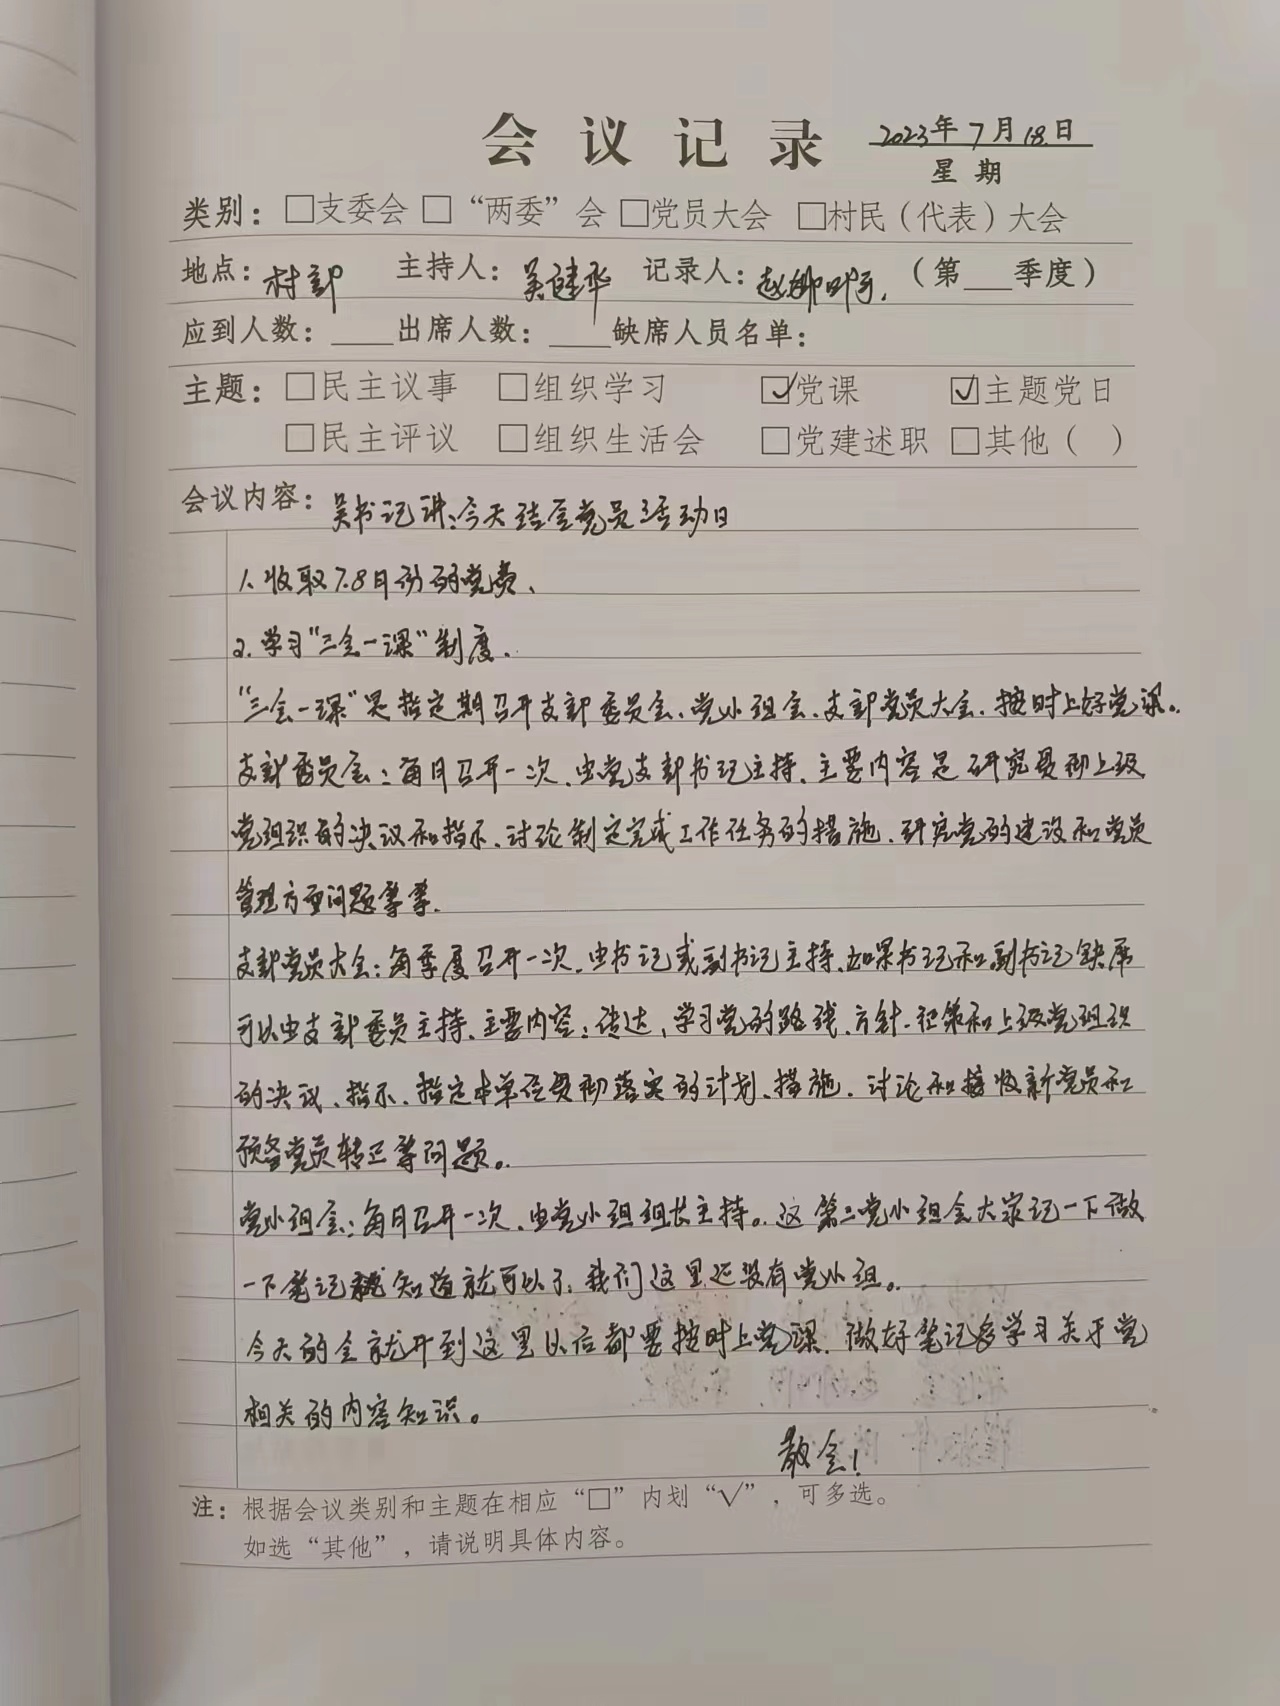 会议记录 2023年7月18日
星期
类别：□支委会 □“两委”会 □党员大会 □村民（代表）大会
地点：村部 主持人：吴建华 记录人：赵 （第___季度）
应到人数：____出席人数：____缺席人员名单：
主题：□民主议事 □组织学习 ☑党课 ☑主题党日
□民主评议 □组织生活会 □党建述职 □其他（ ）
会议内容：吴书记讲：今天结合党员活动日
1、收取7.8月份的党费、
2. 学习“三会一课”制度.
“三会一课”是指定期召开支部委员会、党小组会、支部党员大会、按时上好党课。
支部委员会：每月召开一次、由党支部书记主持、主要内容是研究贯彻上级
党组织的决议和指示、讨论制定完成工作任务的措施、研究党的建设和党员
管理方面问题等等.
支部党员大会：每季度召开一次、由书记或副书记主持、如果书记和副书记缺席
可以由支部委员主持、主要内容：传达，学习党的路线、方针、政策和上级党组织
的决议、指示、指定本单位贯彻落实的计划、措施、讨论和接收新党员和
预备党员转正等问题。
党小组会：每月召开一次、由党小组组长主持。这第二党小组会大家记一下做
一下笔记 知道就可以了，我们这里还没有党小组。
今天的会就开到这里以后都要按时上党课、做好笔记多学习关于党
相关的内容知识。
散会！
注：根据会议类别和主题在相应“□”内划“√”，可多选。
如选“其他”，请说明具体内容。